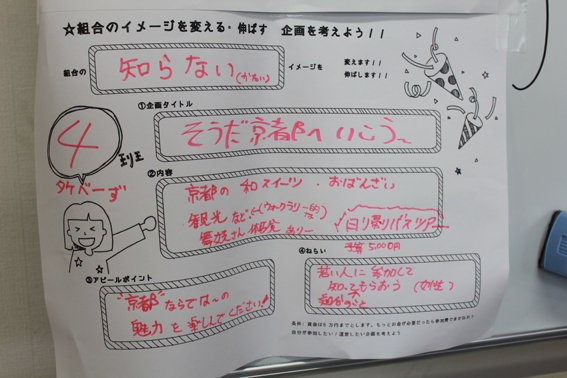 ☆組合のイメージを変える・伸ばす　企画を考えよう！！
組合の 知らない(かたい) イメージを
変えます！！
伸ばします！！
①企画タイトル
そうだ京都へいこう〜
4 班
タケベーず
②内容
京都の和スイーツ・おばんざい
観光など(ウォークラリー的な)
舞妓さん体験 あり
日帰りバスツアー
予算 5,000円
③アピールポイント
"京都"ならでは〜の
魅力を楽しんでください!
④ねらい
若い人に参加して
知ってもらおう (女性)
組合のこと
自分が参加したい！運営したい企画を考えよう